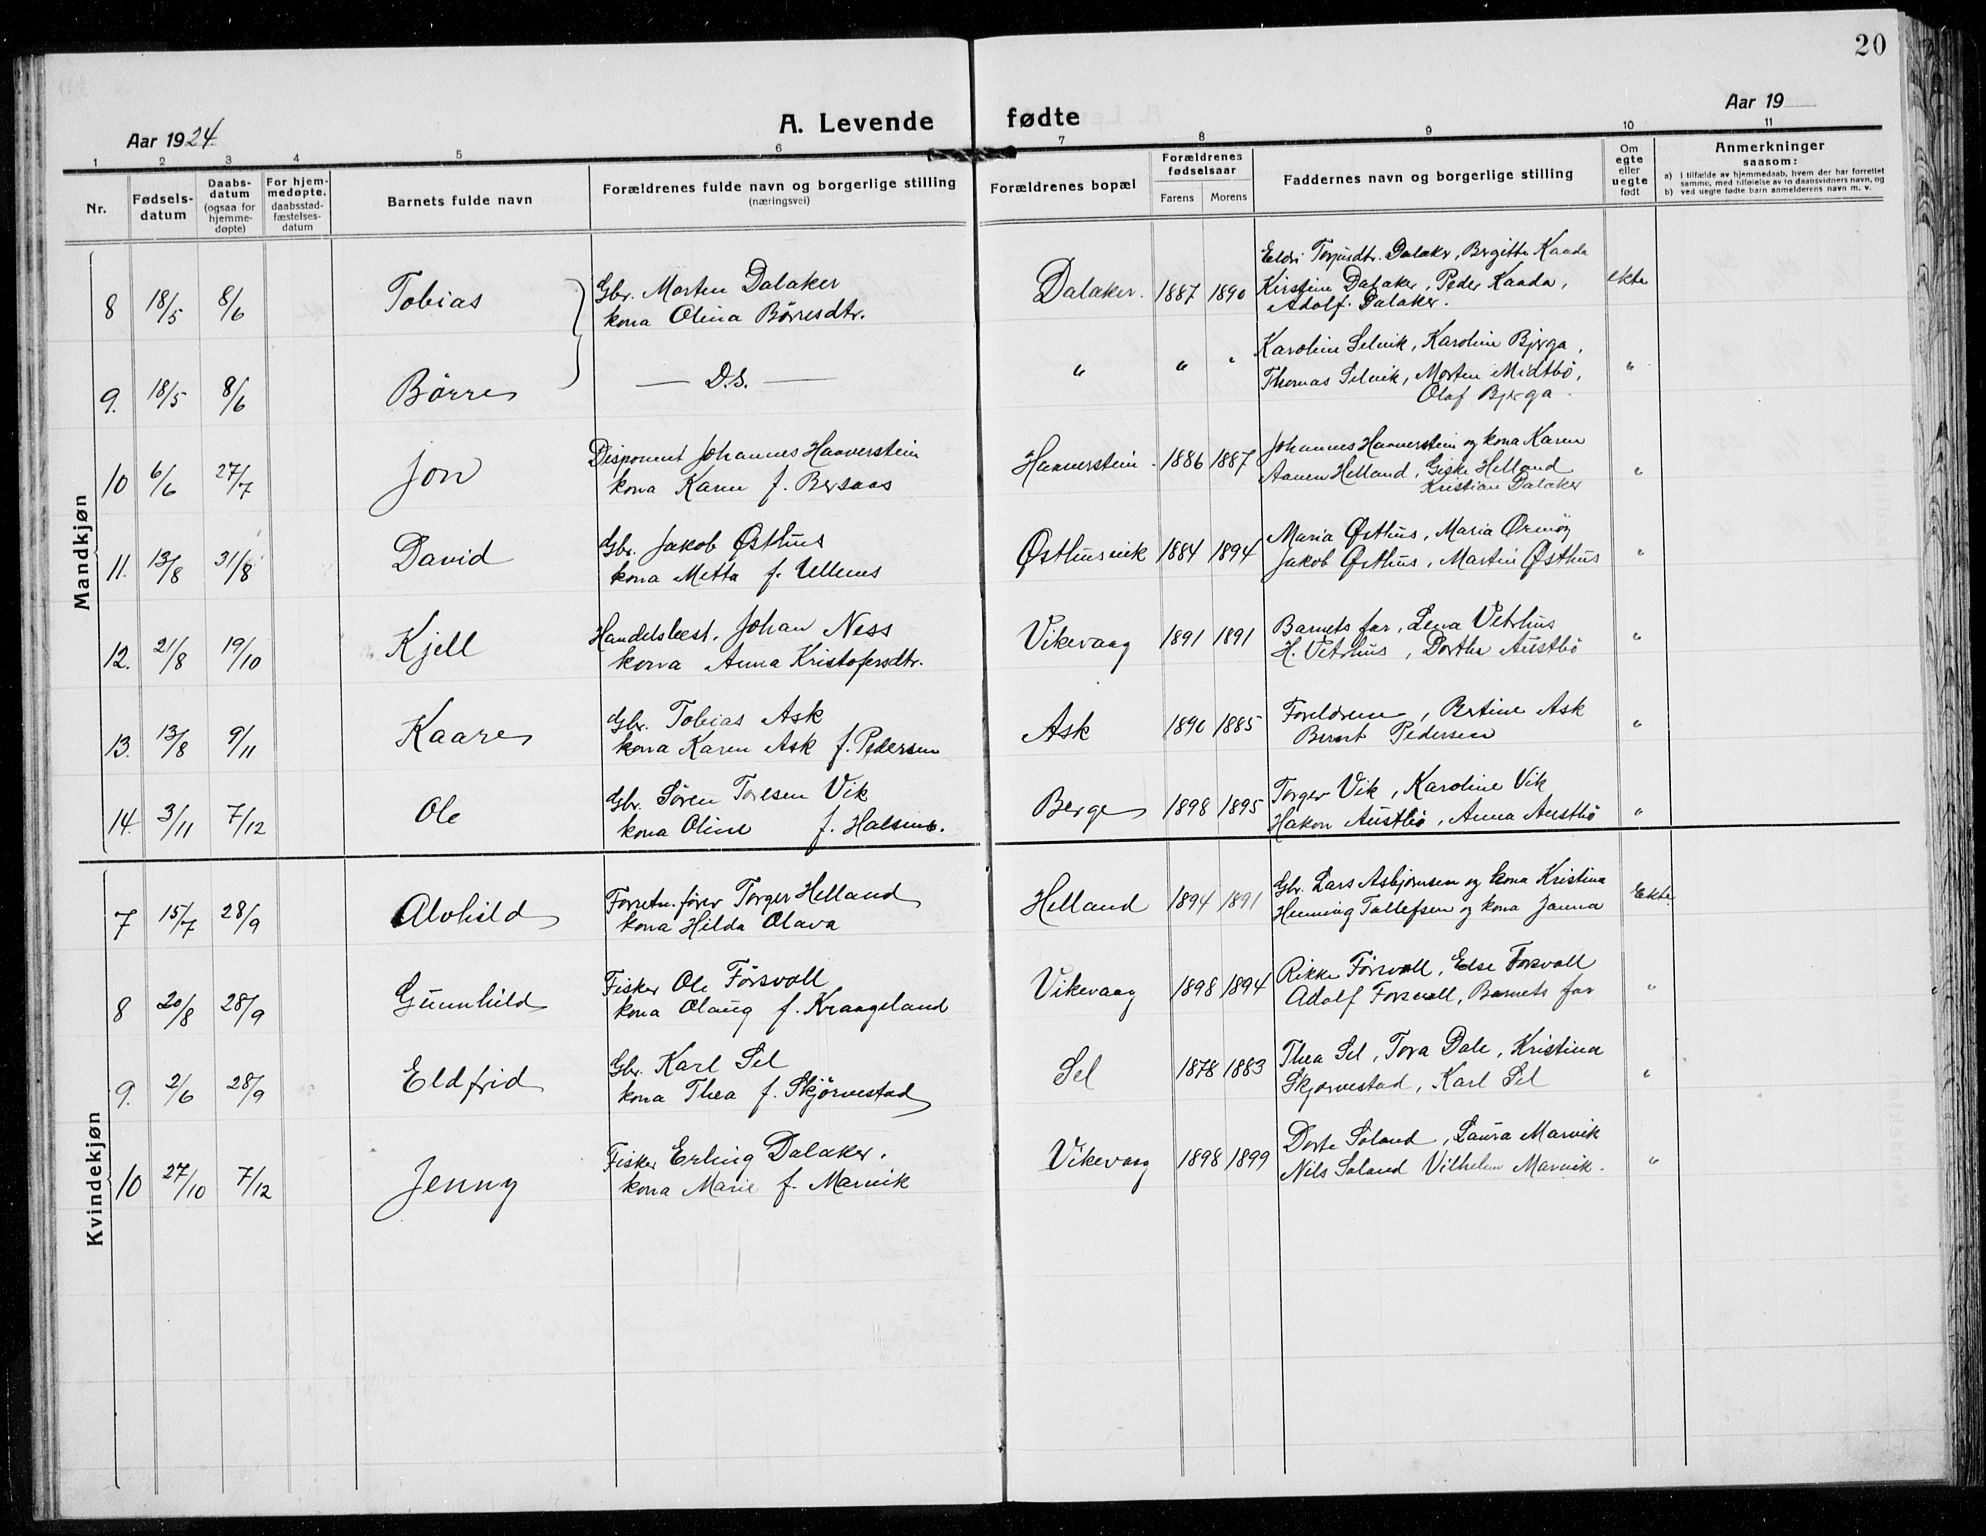 20
Aar 1924.
A. Levende fødte
Aar 19
1 2 3 4 5 6 7 8 9 10 11
Nr.
Fødsels-
datum
Daabs-
datum
(ogsaa for
hjemme-
døpte)
For hjem-
medøpte.
daabsstad-
fæstelses-
datum
Barnets fulde navn
Forældrenes fulde navn og borgerlige stilling
(næringsvei)
Forældrenes bopæl
Forældrenes
fødselsaar
Farens Morens
Faddernes navn og borgerlige stilling
Om
egte
eller
uegte
født
Anmerkninger
saasom:
a) i tilfælde av hjemmedaab, hvem der har forrettet
samme, med tilføielse av to daabsvidners navn, og
b) ved uegte fødte barn anmelderens navn m. v.
Mandkjøn
8 18/5 8/6 Tobias
Gbr. Morten Dalaker
kona Olina Børresdtr.
Dalaker. 1887 1890
Birgitte Kaada
Kirstine Dalaker, Peder Kaada,
Adolf Dalaker.
ekte
9. 18/5 8/6 Børre
— D.S. —
" " "
Karoline Selvik, Karoline Bjerga,
Thomas Selvik, Morten Midtbö,
Olaf Bjerga.
"
10 6/6 27/7 Jon
Disponent Johannes Haaverstein
kona Karen f. Bersaas
Haaverstein. 1886 1887
Johannes Haaverstein og kona Karen
Helland, Giske Helland
Kristian Dalaker
"
11. 13/8 31/8 David
Gbr. Jakob Østhus
kona Metta f.
Østhusvik 1884 1894
Maria Østhus, Maria Ormöy
Jakob Østhus, Martin Østhus
"
12. 21/8 19/10 Kjell
Handelsbest. Johan Ness
kona Anna Kristofersdtr.
Vikevaag 1891 1891
Barnets far, Lena Vetrhus
H. Vetrhus, Dorthe Austbö
"
13. 13/8 9/11 Kaare
Gbr. Tobias Ask
kona Karen Ask f. Pedersen
Ask 1890 1885
Foreldrene, Bertine Ask
Bernt Pedersen
"
14. 3/11 7/12 Ole
Gbr. Sören Toresen Vik
kona Oline f. Halsene.
Berge 1898 1895
Torger Vik, Karoline Vik
Hakon Austbö, Anna Austbö
"
Kvindekjøn
7 15/7 28/9 Alvhild
Forretn.förer Torger Helland
kona Hilda Olava
Helland 1894 1891
Gbr. Lars Asbjørnsen og kona Kristina
Henning Tollefsen og kona Janna
Ekte
8 20/8 28/9 Gunnhild
Fisker Ole Försvoll
kona Olaug f. Kraageland
Vikevaag 1898 1894
Rikke Försvoll, Else Forsvoll
Adolf Forsvoll, Barnets far
"
9. 2/6 28/9 Eldfrid
Gbr. Karl Sel
kona Thea f. Skjörvestad
Sel 1878 1883
Thea Sel, Tora Dale, Kristina
Skjorvestad, Karl Sel
"
10 27/10 7/12 Jenny
Fisker Erling Dalaker.
kona Marie f. Marvik
Vikevaag 1898 1899
Dorte Soland, Laura Marvik
Nils Soland Vilhelm Marvik.
"